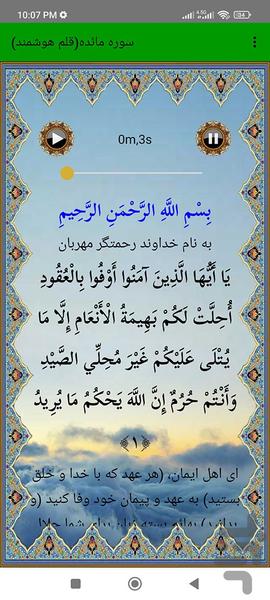 10:07 PM
سوره مائده(قلم هوشمند)
0m,3s
بِسْمِ اللَّهِ الرَّحْمَنِ الرَّحِيمِ
به نام خداوند رحمتگر مهربان
يَا أَيُّهَا الَّذِينَ آمَنُوا أَوْفُوا بِالْعُقُودِ
أُحِلَّتْ لَكُمْ بَهِيمَةُ الْأَنْعَامِ إِلَّا مَا
يُتْلَى عَلَيْكُمْ غَيْرَ مُحِلِّي الصَّيْدِ
وَأَنْتُمْ حُرُمٌ إِنَّ اللَّهَ يَحْكُمُ مَا يُرِيدُ
﴿١﴾
ای اهل ایمان، (هر عهد که با خدا و خلق
بستید) به عهد و پیمان خود وفا کنید (و
بدانید) بهائم بسته زبان برای شما حلال